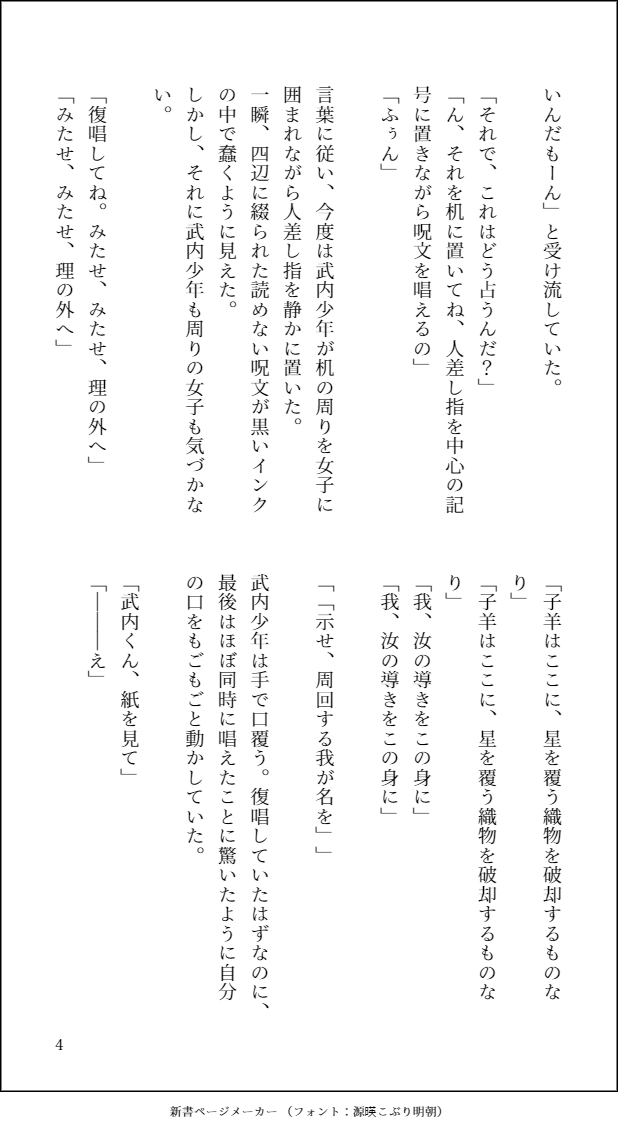 いんだもーん」と受け流していた。
「それで、これはどう占うんだ？」
「ん、それを机に置いてね、人差し指を中心の記
号に置きながら呪文を唱えるの」
「ふぅん」
言葉に従い、今度は武内少年が机の周りを女子に
囲まれながら人差し指を静かに置いた。
一瞬、四辺に綴られた読めない呪文が黒いインク
の中で蠢くように見えた。
しかし、それに武内少年も周りの女子も気づかな
い。
「復唱してね。みたせ、みたせ、理の外へ」
「みたせ、みたせ、理の外へ」
「子羊はここに、星を覆う織物を破却するものな
り」
「子羊はここに、星を覆う織物を破却するものな
り」
「我、汝の導きをこの身に」
「我、汝の導きをこの身に」
「「示せ、周回する我が名を」」
武内少年は手で口覆う。復唱していたはずなのに、
最後はほぼ同時に唱えたことに驚いたように自分
の口をもごもごと動かしていた。
「武内くん、紙を見て」
「―――え」
4
新書ページメーカー（フォント：源暎こぶり明朝）